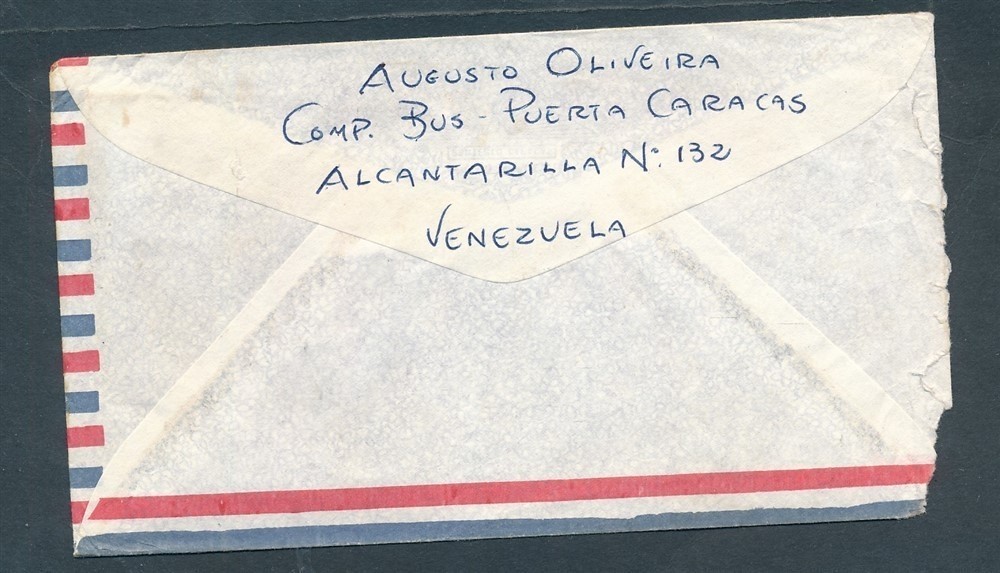 AUGUSTO OLIVEIRA
COMP. BUS - PUERTA CARACAS
ALCANTARILLA Nº: 132
VENEZUELA